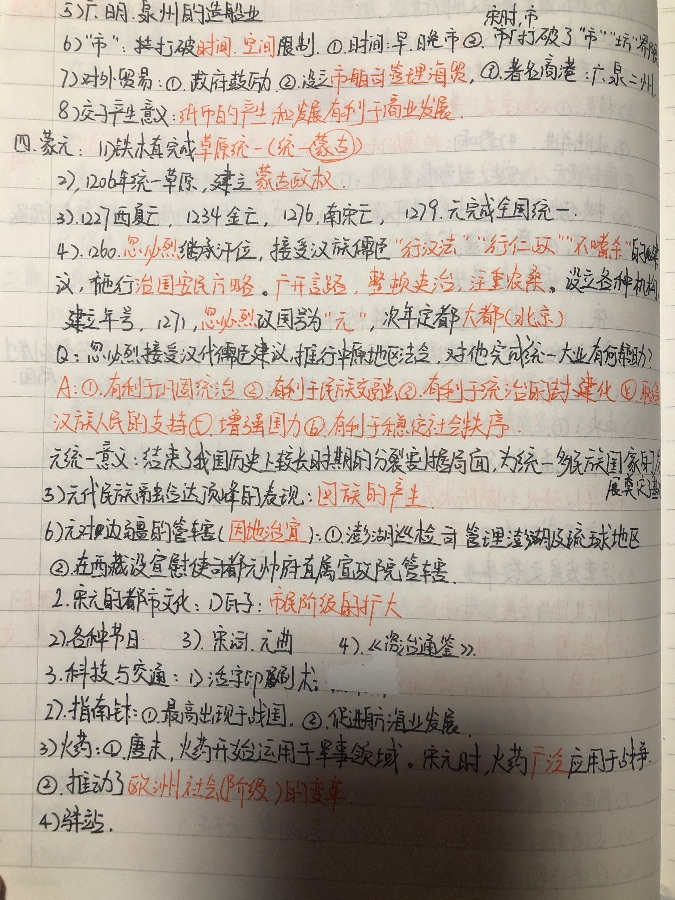 5)广、明、泉州的造船业
宋时,市
6)“市”:其打破时间、空间限制. ①时间:早、晚市 ②. 打破了“市”“坊”界限
7)对外贸易:①. 政府鼓励 ②.设立市舶司管理海贸, ③.著名商港:广、泉二州.
8)交子产生意义:纸币的产生和发展有利于商业发展.
四.蒙元:1)铁木真完成草原统一(统一蒙古)
2),1206年统一草原,建立蒙古政权.
3).1227西夏亡,1234金亡,1276.南宋亡,1279.元完成全国统一.
4).1260.忽必烈继承汗位,接受汉族儒臣“行汉法”“行仁政”“不嗜杀”的建
议,施行治国安民方略。广开言路,整顿吏治,注重农桑。设立各种机构,
建立年号,1271,忽必烈改国号为“元”,次年定都大都(北京)
Q:忽必烈接受汉代儒臣建议,推行中原地区法令,对他完成统一大业有何帮助?
A:①.有利于巩固统治 ②.有利于民族交融 ③.有利于统治的封建化 ④
汉族人民的支持 ⑤.增强国力 ⑥.有利于稳定社会秩序.
元统一意义:结束了我国历史上较长时期的分裂割据局面,为统一多民族国家的发
展奠定
5)元代民族融合达顶峰的表现:回族的产生.
6)元对边疆的管辖(因地治宜):①澎湖巡检司管理澎湖及琉球地区
②.在西藏设宣慰使司都元帅府直属宣政院管辖.
2.宋元的都市文化:1)瓦子:市民阶级的扩大
2).各种节日 3).宋词、元曲 4).《资治通鉴》.
3.科技与交通:1)活字印刷术:
2).指南针:①最高出现于战国. ②.促进航海业发展.
3)火药:①.唐末,火药开始运用于军事领域。宋元时,火药广泛应用于战争.
②.推动了欧洲社会(阶级)的变革.
4)驿站.